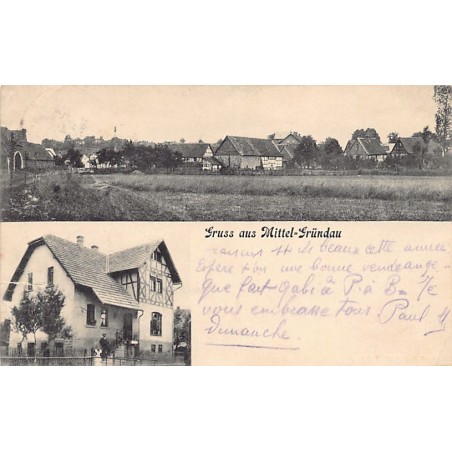 Gruss aus Mittel-Gründau
beaux cette année
une bonne vendange.
Que fait Gabi à P. à B.
vous embrasse tous. Paul
Dimanche.